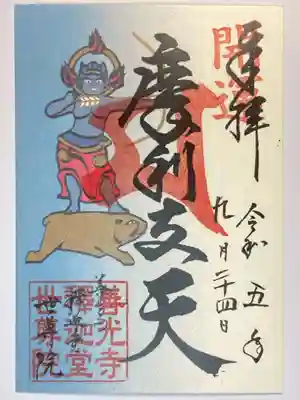 奉拝
開運
令和五年
九月二十四日
摩利支天
善光寺
釋迦堂
世尊院